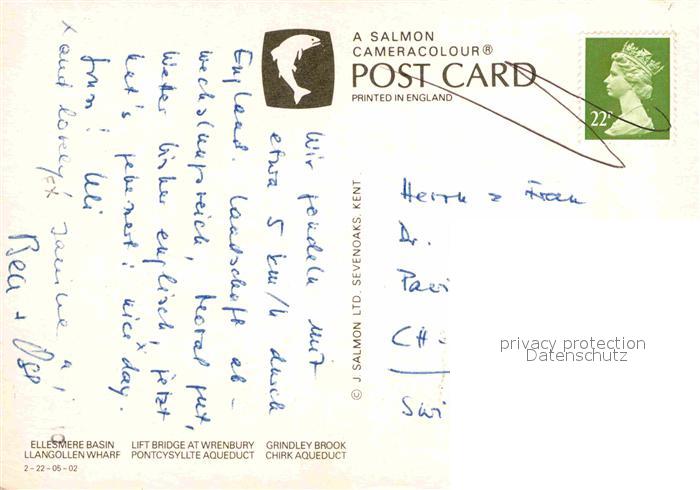 A SALMON
CAMERACOLOUR®
POST CARD
PRINTED IN ENGLAND
22P
Wir gondeln mit
etwa 5 km/h durch
England. Landschaft ab-
wechslungsreich, Moral gut,
Wetter bisher englisch, jetzt
hat's gebessert: nice x day.
Gruss! Ueli
x and lovely xx Janine
Bea +
© J. SALMON LTD. SEVENOAKS. KENT.
Herrn & Frau
Dr.
CH-
privacy protection
Datenschutz
ELLESMERE BASIN LIFT BRIDGE AT WRENBURY GRINDLEY BROOK
LLANGOLLEN WHARF PONTCYSYLLTE AQUEDUCT CHIRK AQUEDUCT
2-22-05-02